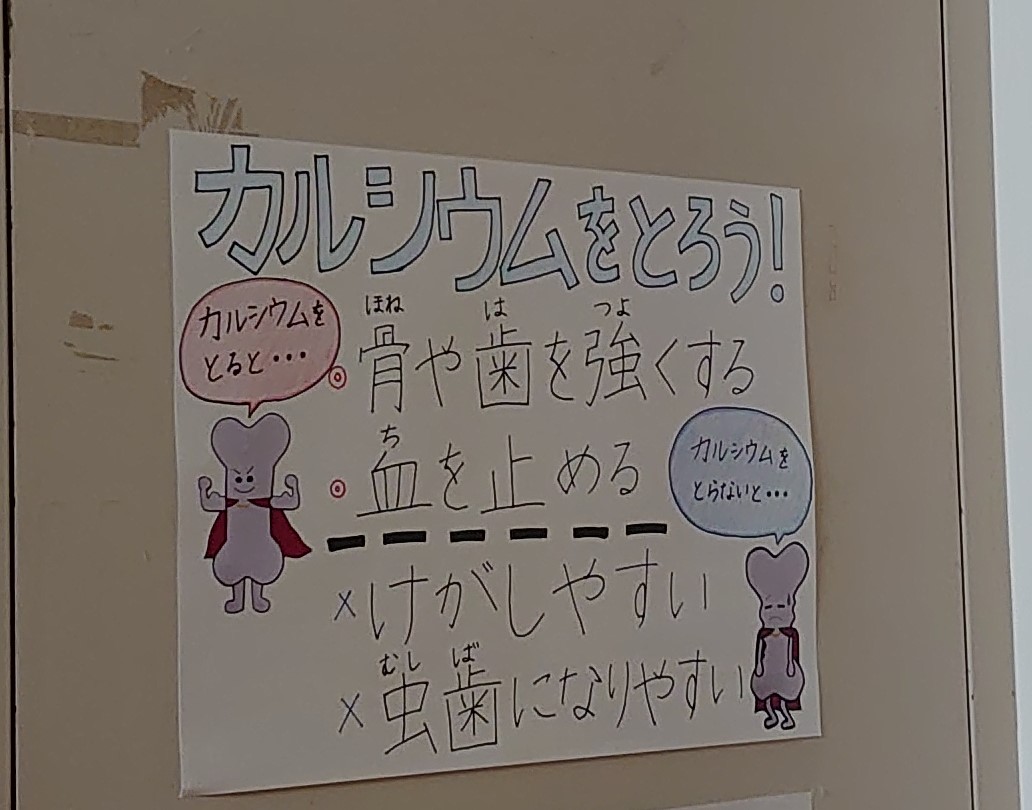 カルシウムをとろう!
カルシウムを
とると・・・
ほね は つよ
◎ 骨や歯を強くする
ち
◎ 血を止める
カルシウムを
とらないと・・・
×けがしやすい
むし ば
×虫歯になりやすい